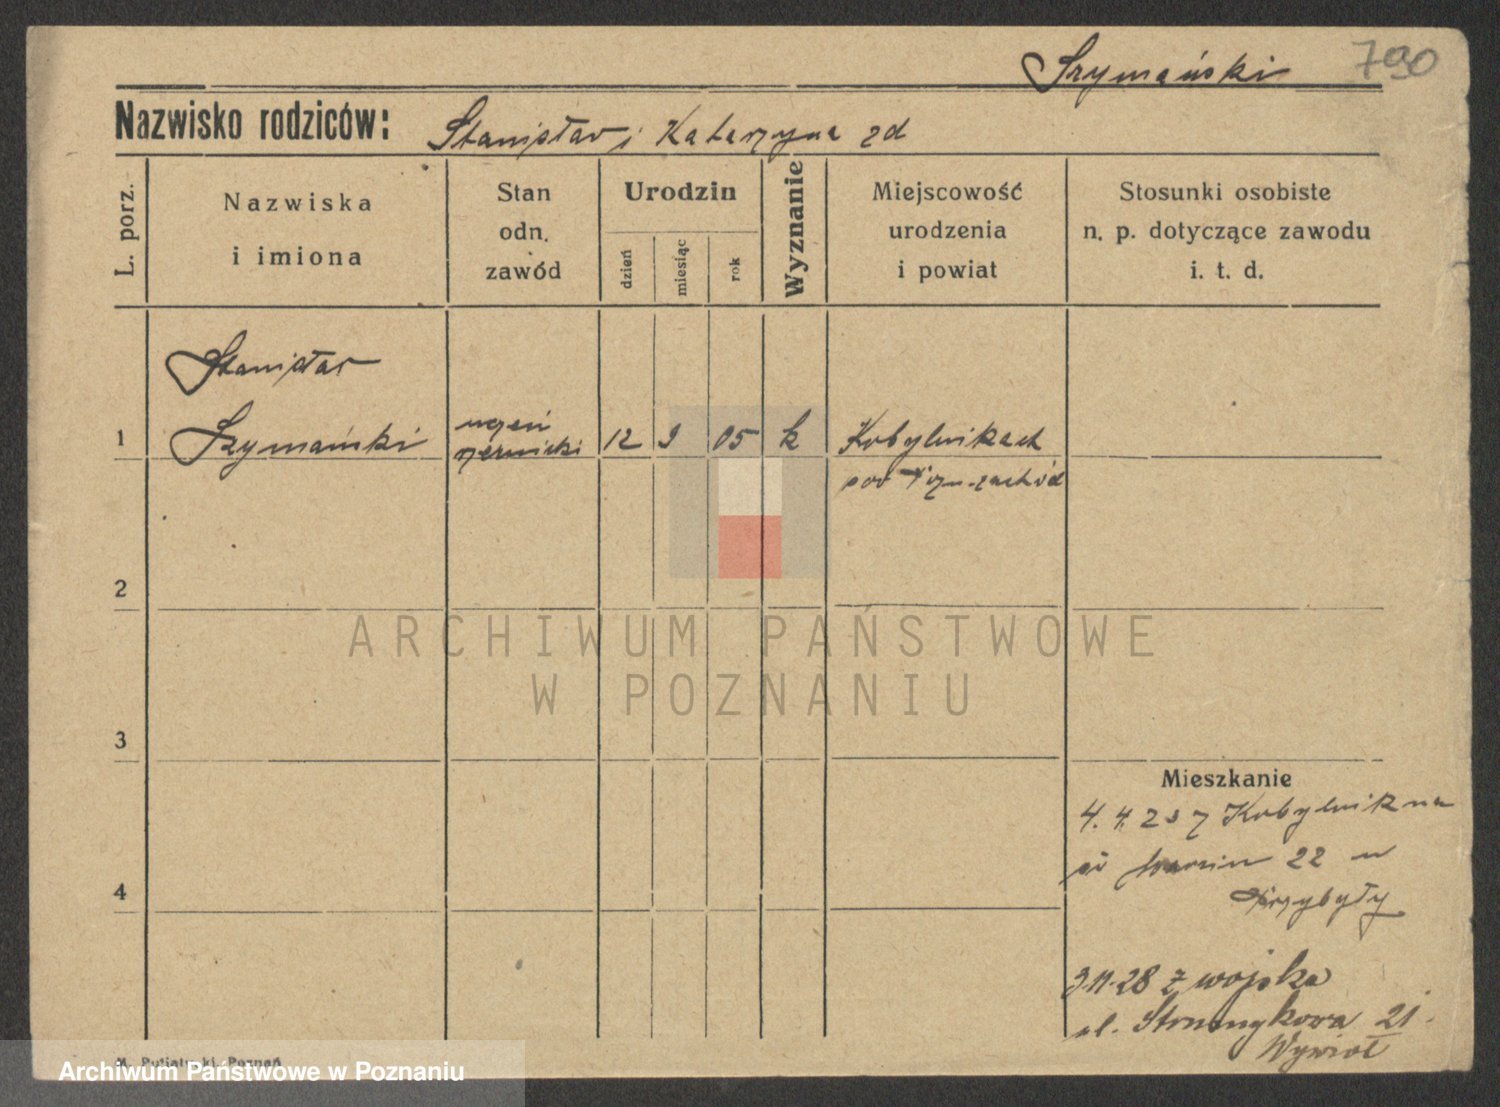 Szymański 790
Nazwisko rodziców: Stanisław i Katarzyna zd
L. porz.
Nazwiska
i imiona
Stan
odn.
zawód
Urodzin
dzień
miesiąc
rok
Wyznanie
Miejscowość
urodzenia
i powiat
Stosunki osobiste
n. p. dotyczące zawodu
i. t. d.
Stanisław
1 Szymański
uczeń
rzeźnicki
12 9 05 k
Kobylnikach
pow Pozn-zachód
2
3
4
Mieszkanie
4. 4. 27 Kobylnik na
22
Przybyły
3.11.28 z wojska
ul. 21.
Wywiał
ARCHIWUM PAŃSTWOWE
W POZNANIU
Poznań
Archiwum Państwowe w Poznaniu